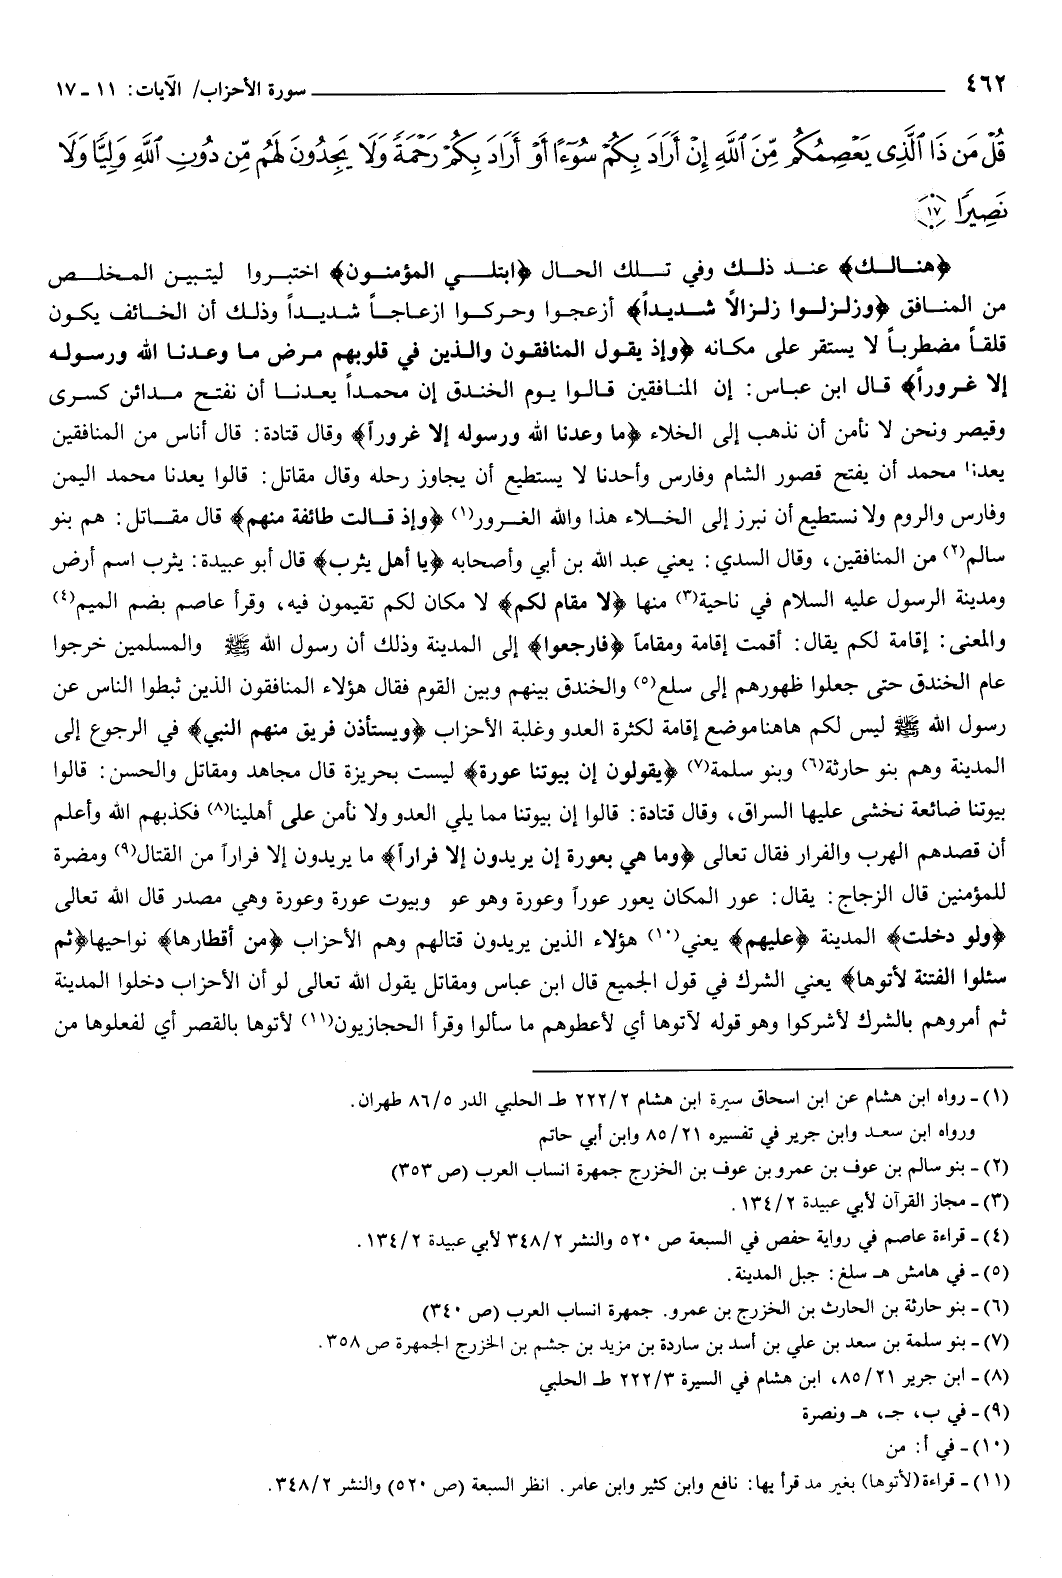 ٤٦٢ سورة الأحزاب/ الآيات: ١١ ـ ١٧
قُلْ مَن ذَا ٱلَّذِى يَعْصِمُكُم مِّنَ ٱللَّهِ إِنْ أَرَادَ بِكُمْ سُوٓءًا أَوْ أَرَادَ بِكُمْ رَحْمَةً وَلَا يَجِدُونَ لَهُم مِّن دُونِ ٱللَّهِ وَلِيًّا وَلَا
نَصِيرًا ١٧
﴿هنالك﴾ عند ذلك وفي تلك الحال ﴿ابتلي المؤمنون﴾ اختبروا ليتبين المخلص
من المنافق ﴿وزلزلوا زلزالاً شديداً﴾ أزعجوا وحركوا ازعاجاً شديداً وذلك أن الخائف يكون
قلقاً مضطرباً لا يستقر على مكانه ﴿وإذ يقول المنافقون والذين في قلوبهم مرض ما وعدنا الله ورسوله
إلا غروراً﴾ قال ابن عباس: إن المنافقين قالوا يوم الخندق إن محمداً يعدنا أن نفتح مدائن كسرى
وقيصر ونحن لا نأمن أن نذهب إلى الخلاء ﴿ما وعدنا الله ورسوله إلا غروراً﴾ وقال قتادة: قال أناس من المنافقين
يعدنا محمد أن يفتح قصور الشام وفارس وأحدنا لا يستطيع أن يجاوز رحله وقال مقاتل: قالوا يعدنا محمد اليمن
وفارس والروم ولا نستطيع أن نبرز إلى الخلاء هذا والله الغرور(١) ﴿وإذ قالت طائفة منهم﴾ قال مقاتل: هم بنو
سالم(٢) من المنافقين، وقال السدي: يعني عبد الله بن أبي وأصحابه ﴿يا أهل يثرب﴾ قال أبو عبيدة: يثرب اسم أرض
ومدينة الرسول عليه السلام في ناحية(٣) منها ﴿لا مقام لكم﴾ لا مكان لكم تقيمون فيه، وقرأ عاصم بضم الميم(٤)
والمعنى: إقامة لكم يقال: أقمت إقامة ومقاماً ﴿فارجعوا﴾ إلى المدينة وذلك أن رسول الله ﷺ والمسلمين خرجوا
عام الخندق حتى جعلوا ظهورهم إلى سلع(٥) والخندق بينهم وبين القوم فقال هؤلاء المنافقون الذين ثبطوا الناس عن
رسول الله ﷺ ليس لكم هاهنا موضع إقامة لكثرة العدو وغلبة الأحزاب ﴿ويستأذن فريق منهم النبي﴾ في الرجوع إلى
المدينة وهم بنو حارثة(٦) وبنو سلمة(٧) ﴿يقولون إن بيوتنا عورة﴾ ليست بحريزة قال مجاهد ومقاتل والحسن: قالوا
بيوتنا ضائعة نخشى عليها السراق، وقال قتادة: قالوا إن بيوتنا مما يلي العدو ولا نأمن على أهلينا(٨) فكذبهم الله وأعلم
أن قصدهم الهرب والفرار فقال تعالى ﴿وما هي بعورة إن يريدون إلا فراراً﴾ ما يريدون إلا فراراً من القتال(٩) ومضرة
للمؤمنين قال الزجاج: يقال: عور المكان يعور عوراً وعورة وهو عو وبيوت عورة وعورة وهي مصدر قال الله تعالى
﴿ولو دخلت﴾ المدينة ﴿عليهم﴾ يعني(١٠) هؤلاء الذين يريدون قتالهم وهم الأحزاب ﴿من أقطارها﴾ نواحيها ﴿ثم
سئلوا الفتنة لأتوها﴾ يعني الشرك في قول الجميع قال ابن عباس ومقاتل يقول الله تعالى لو أن الأحزاب دخلوا المدينة
ثم أمروهم بالشرك لأشركوا وهو قوله لآتوها أي لأعطوهم ما سألوا وقرأ الحجازيون(١١) لأتوها بالقصر أي لفعلوها من
(١) ـ رواه ابن هشام عن ابن اسحاق سيرة ابن هشام ٢٢٢/٢ طـ الحلبي الدر ٨٦/٥ طهران.
ورواه ابن سعد وابن جرير في تفسيره ٨٥/٢١ وابن أبي حاتم
(٢) ـ بنو سالم بن عوف بن عمرو بن عوف بن الخزرج جمهرة انساب العرب (ص ٣٥٣)
(٣) ـ مجاز القرآن لأبي عبيدة ١٣٤/٢.
(٤) ـ قراءة عاصم في رواية حفص في السبعة ص ٥٢٠ والنشر ٣٤٨/٢ لأبي عبيدة ١٣٤/٢.
(٥) ـ في هامش هـ سلغ: جبل المدينة.
(٦) ـ بنو حارثة بن الحارث بن الخزرج بن عمرو. جمهرة انساب العرب (ص ٣٤٠)
(٧) ـ بنو سلمة بن سعد بن علي بن أسد بن ساردة بن مزيد بن جشم بن الخزرج الجمهرة ص ٣٥٨.
(٨) ـ ابن جرير ٨٥/٢١، ابن هشام في السيرة ٢٢٢/٣ طـ الحلبي
(٩) ـ في ب، جـ، هـ ونصرة
(١٠) ـ في أ: من
(١١) ـ قراءة (لأتوها) بغير مد قرأ بها: نافع وابن كثير وابن عامر. انظر السبعة (ص ٥٢٠) والنشر ٣٤٨/٢.